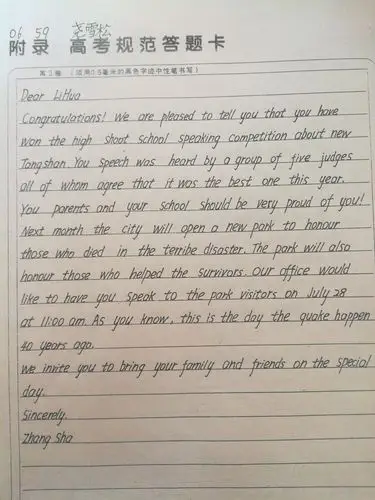 06 59 尧雪松
附录 高考规范答题卡
第Ⅱ卷 (须用0.5毫米的黑色字迹中性笔书写)
Dear LiHua
Congratulations! We are pleased to tell you that you have
won the high shoot school speaking competition about new
Tangshan You Speech was heard by a group of five judges
all of whom agree that it was the best one this year.
You parents and your school should be very proud of you!
Next month the city will open a new park to honour
those who died in the terribe disaster. The park will also
honour those who helped the survivors. Our office would
like to have you speak to the park visitors on July 28
at 11:00 am. As you know, this is the day the quake happen
40 years ago.
We invite you to bring your family and friends on the special
day.
Sincerely.
Zhang Sha